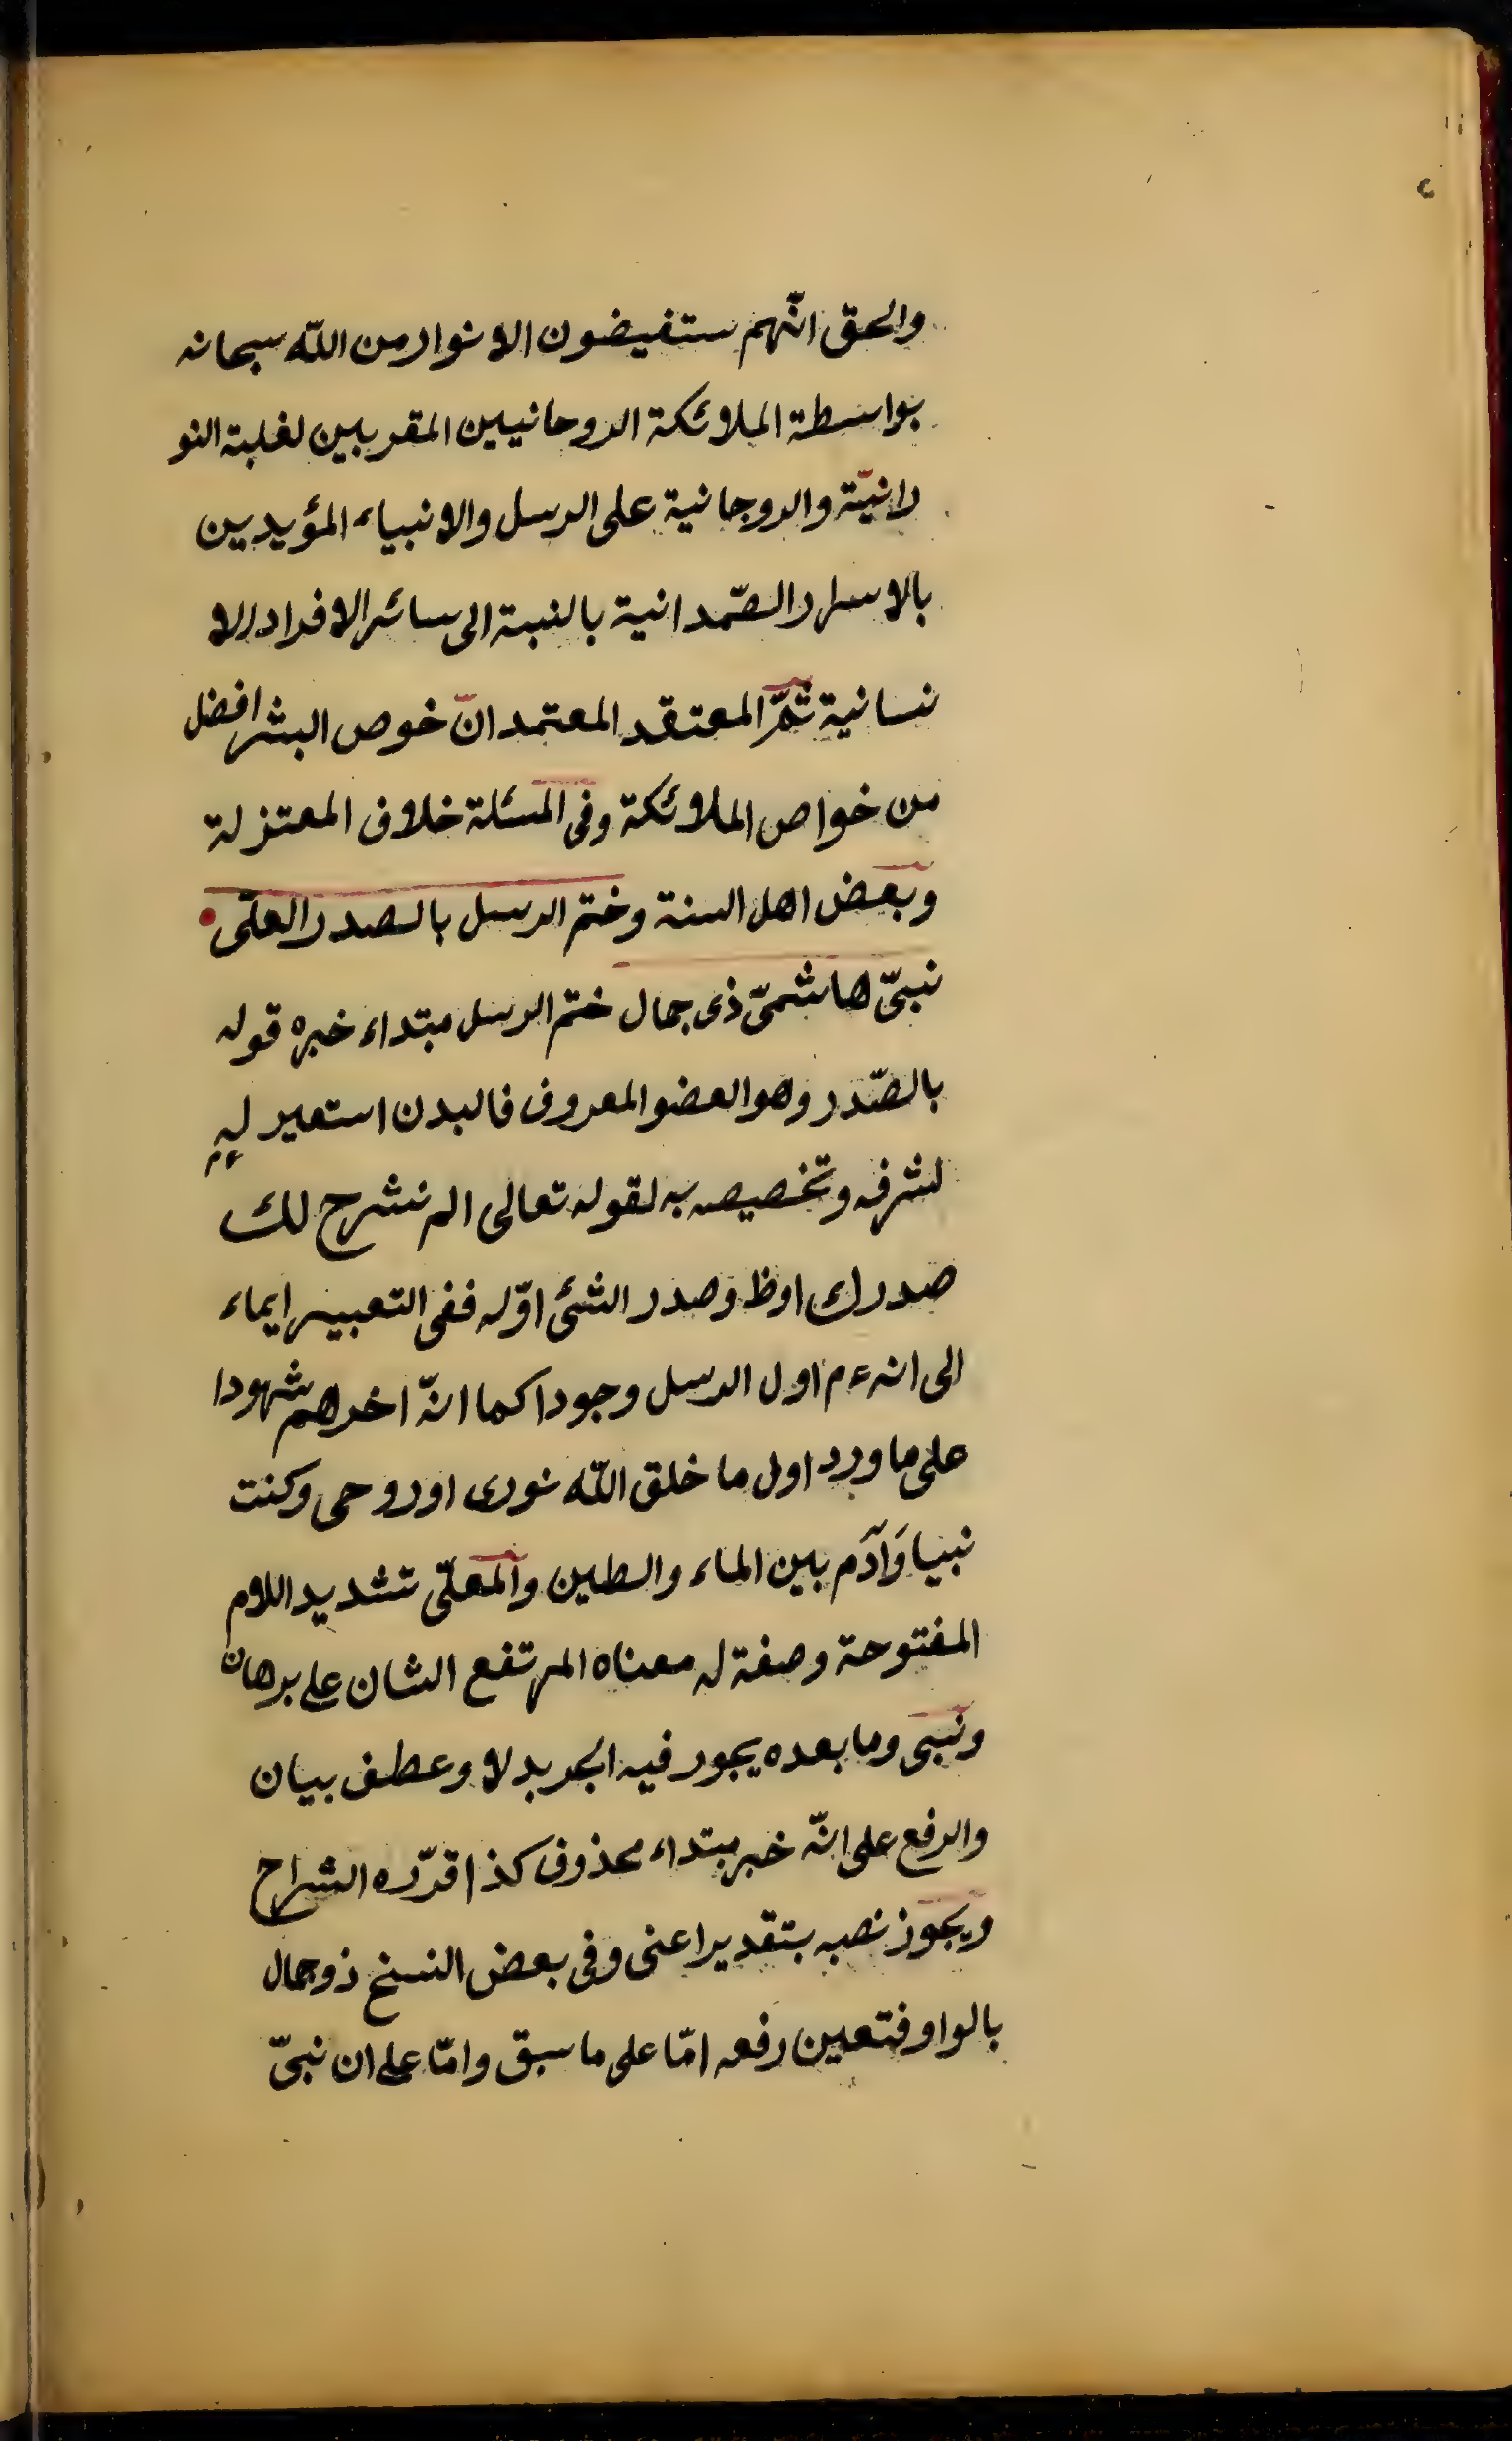 والحق انّهم ستفيضون الانوار من اللّه سبحانه
بواسطة الملائكة الروحانيين المقربين لغلبة النو
رانيّة والروحانية على الرسل والانبياء المؤيدين
بالاسرار الصّمدانية بالنسبة الى سائر الافراد الا
نسانية ثمّ المعتقد المعتمد انّ خوص البشر افضل
من خواص الملائكة وفى المسئلة خلاف المعتزلة
وبعض اهل السنة وختم الرسل بالصدر المعلّى
نبىّ هاشمىّ ذى جمال ختم الرسل مبتداء خبره قوله
بالصّدر وهو العضو المعروف فالبدن استعير له
لشرفه وتخصيصه به لقوله تعالى الم نشرح لك
صدرك اوظ وصدر الشئ اوّله ففى التعبير ايماء
الى انه ءم اول الرسل وجودا كما انّه اخرهم شهودا
على ما ورد اول ما خلق اللّه نورى او روحى وكنت
نبيا وَآدَم بين الماء والطين والمعلّى تشديد اللام
المفتوحة وصفة له معناه المرتفع الشان على برهان
ونبى وما بعده يجور فيه الجر بدلا وعطف بيان
والرفع على انّه خبر مبتداء محذوف كذا قرّره الشراح
ويجوز نصبه بتقدير اعنى وفى بعض النسخ ذو جمال
بالواو فتعين رفعه امّا على ما سبق وامّا على ان نبىّ